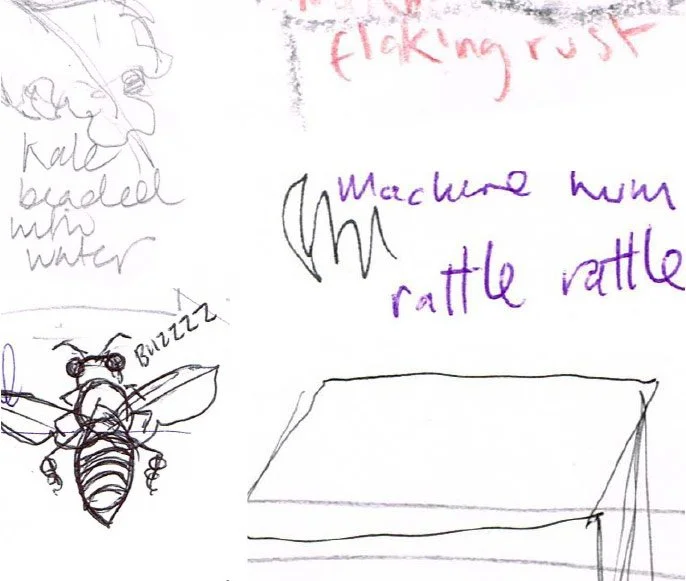 flaking rust
Kale
beaded
with
water
Machine hum
rattle rattle
Buzzzz